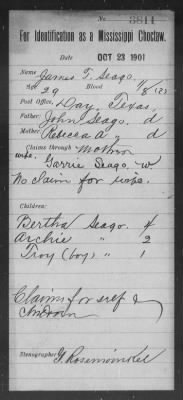 No. 3811
For Identification as a Mississippi Choctaw.
Date OCT 23 1901
Name James T. Seago.
Age 29 Blood 1/8 (2)
Post Office, Day, Texas,
Father, John Seago. d
Mother Rebecca A " d
Claims through Mother
wife. Garrie Seago. w
No claim for wife.
Children:
Bertha Seago. 4
Archie " 2
Troy (boy) " 1
Claims for self &
children
Stenographer